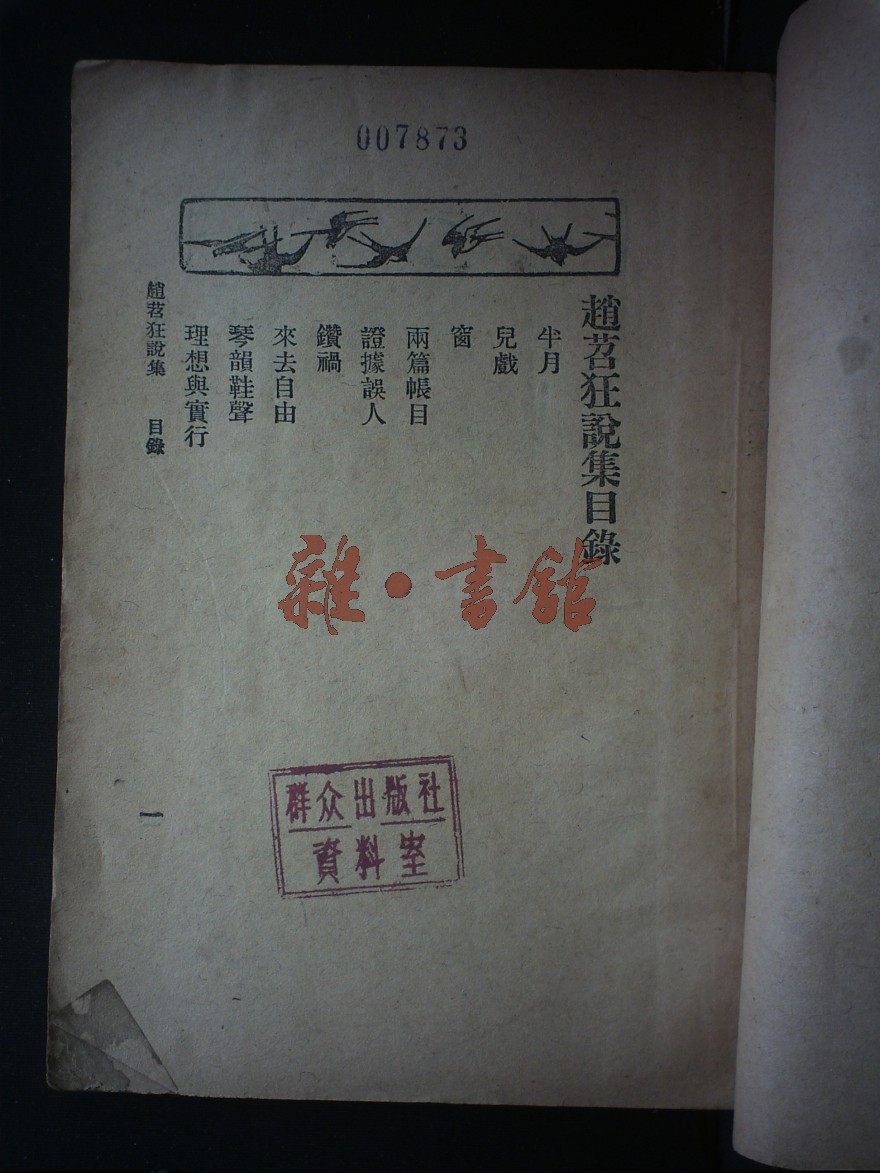 007873
趙苕狂說集目錄
半月
兒戲
窗
兩篇帳目
證據誤人
鑽禍
來去自由
琴韻鞋聲
理想與實行
趙苕狂說集 目錄
一
雜·書館
群众出版社
資料室